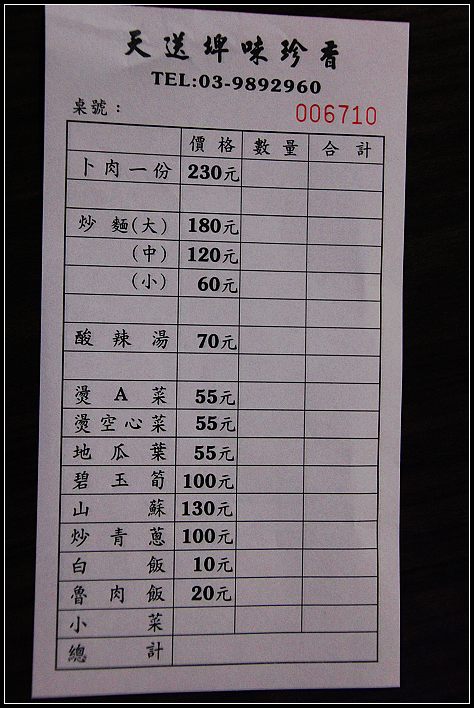 天送埤味珍香
TEL:03-9892960
桌號：
006710
價格 數量 合計
卜肉一份 230元
炒麵(大) 180元
(中) 120元
(小) 60元
酸辣湯 70元
燙A菜 55元
燙空心菜 55元
地瓜葉 55元
碧玉筍 100元
山蘇 130元
炒青蔥 100元
白飯 10元
魯肉飯 20元
小菜
總計